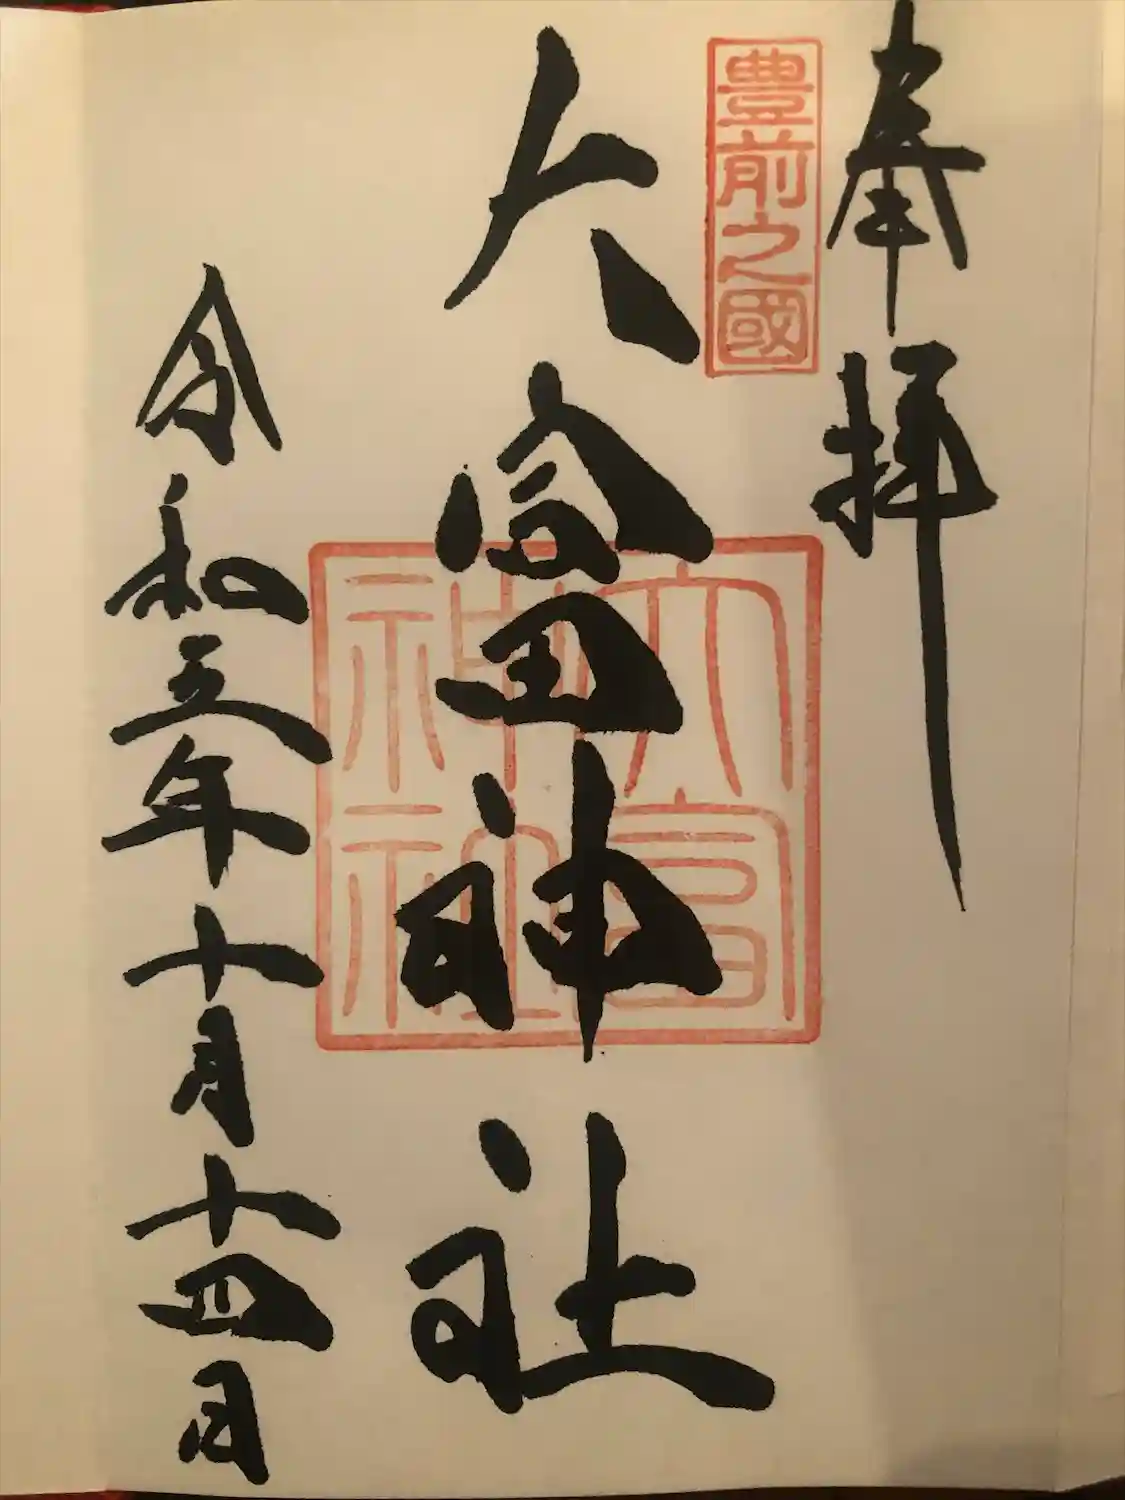 奉拝
豊前之國
大富神社
大富
神社
令和五年十月十四日